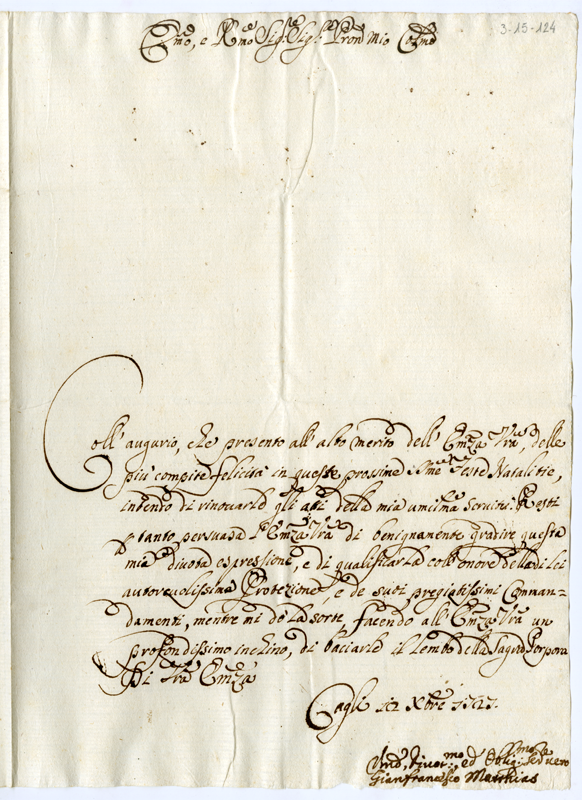 3-15-124
Emo, e Rmo Sig:re Sig:re Pron mio Colmo
Coll' augurio, che presento all' alto merito dell' Emza Vra, delle
più compite felicità in queste prossime SSme Feste Natalitie,
intendo di rinovarle gli atti della mia umilma servitù: Resti
p tanto persuasa l' Emza Vra di benignamente gradire questa
mia divota espressione, e di qualificarla coll' onore della di lei
autorevolissima Protezione, e de suoi pregiatissimi Comman-
damenti, mentre mi dò la sorte, facendo all' Emza Vra un
profondissimo inchino, di baciarle il lembo della Sagra Porpora
Di Vra Emza
Cagli 12 Xbre 1727.
Umo, divot:mo ed Oblig:mo Servero
Gianfrancesco Matthias